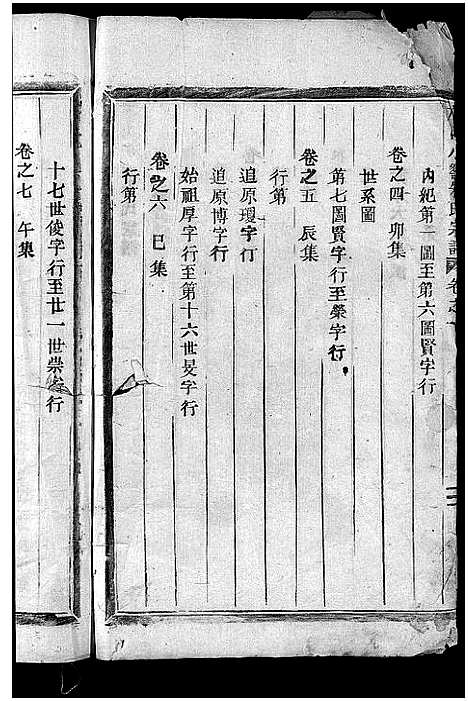 內紀第一圖至第六圖賢字行
卷之四 卯集
世系圖
第七圖賢字行至榮字行
卷之五 辰集
行第
追原瓊字行
追原博字行
始祖厚字行至第十六世旻字行
卷之六 巳集
行第
十七世俊字行至廿一世崇字行
卷之七 午集